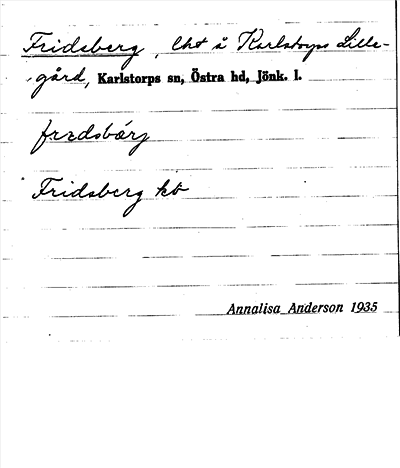 Fridsberg, lht å Karlstorps Lille-
gård, Karlstorps sn, Östra hd, Jönk. l.
frɪdsbárj
Fridsberg kt
Annalisa Anderson 1935